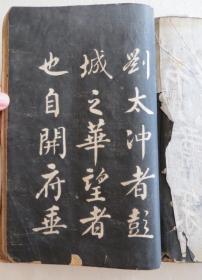 劉太冲者彭
城之華望者
也自開府垂